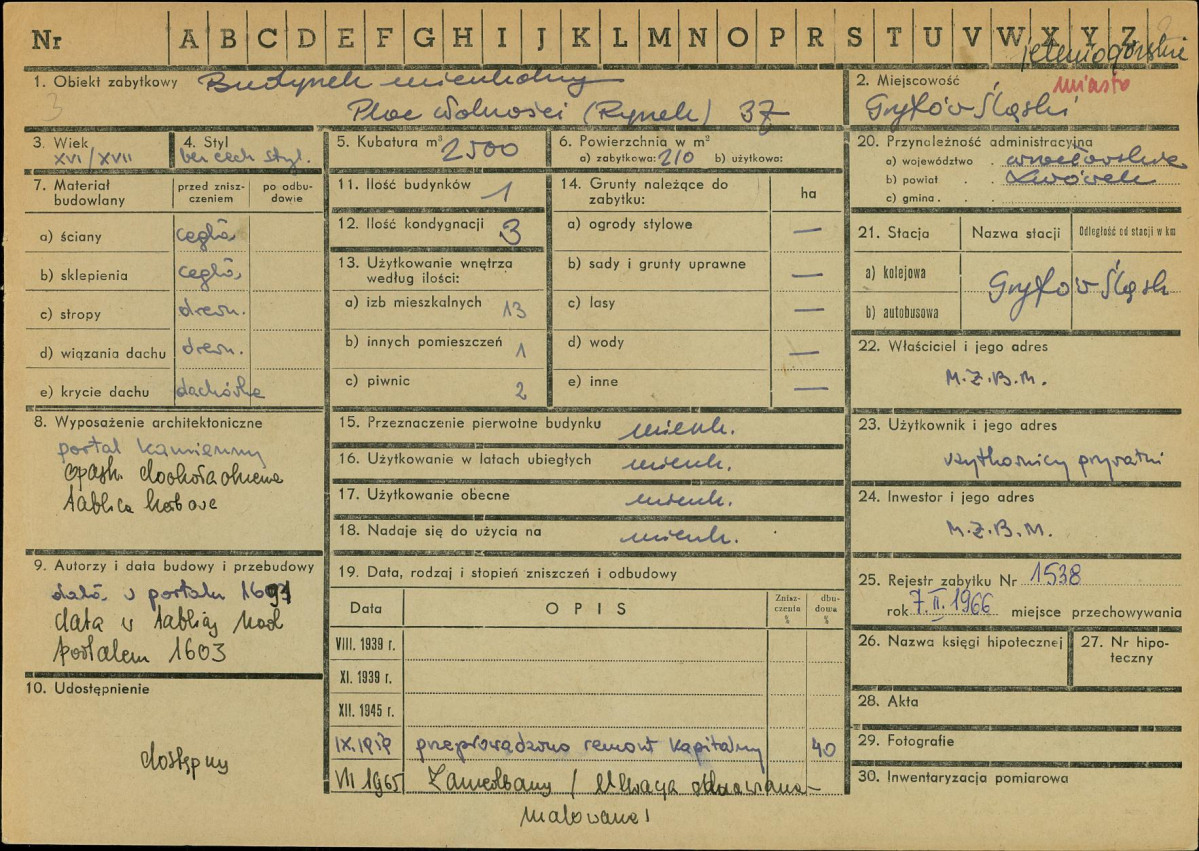 Nr A B C D E F G H I J K L M N O P R S T U V W X Y Z
jeleniogórskie
1. Obiekt zabytkowy Budynek mieszkalny
Plac Wolności (Rynek) 37
3
2. Miejscowość miasto
Gryfów Śląski
3. Wiek
XVI/XVII
4. Styl
bez cech styl.
5. Kubatura m³ 2500
6. Powierzchnia w m²
a) zabytkowa: 210 b) użytkowa:
20. Przynależność administracyjna
a) województwo . wrocławskie
b) powiat . . Lwówek
c) gmina . . .
7. Materiał budowlany
przed zniszczeniem
po odbudowie
a) ściany cegła
b) sklepienia cegła
c) stropy drewn.
d) wiązania dachu drewn.
e) krycie dachu dachówka
11. Ilość budynków 1
12. Ilość kondygnacji 3
13. Użytkowanie wnętrza
według ilości:
a) izb mieszkalnych 13
b) innych pomieszczeń 1
c) piwnic 2
14. Grunty należące do
zabytku:
ha
a) ogrody stylowe —
b) sady i grunty uprawne —
c) lasy —
d) wody —
e) inne —
21. Stacja Nazwa stacji Odległość od stacji w km
a) kolejowa
Gryfów Śląsk
b) autobusowa
22. Właściciel i jego adres
M.Z.B.M.
8. Wyposażenie architektoniczne
portal kamienny
opask. dookoła okienne
tablica
15. Przeznaczenie pierwotne budynku mieszk.
16. Użytkowanie w latach ubiegłych mieszk.
17. Użytkowanie obecne mieszk.
18. Nadaje się do użycia na mieszk.
23. Użytkownik i jego adres
użytkownicy prywatni
24. Inwestor i jego adres
M.Z.B.M.
9. Autorzy i data budowy i przebudowy
data w portalu
data w tablicy nad
portalem 1603
10. Udostępnienie
dostępny
19. Data, rodzaj i stopień zniszczeń i odbudowy
Data OPIS Zniszczenia % dbudowa %
VIII. 1939 r.
XI. 1939 r.
XII. 1945 r.
przeprowadzono remont kapitalny 40
VII 1965 Zaniedbany / Uwaga
malowane!
25. Rejestr zabytku Nr 1538
rok 7.II.1966 miejsce przechowywania
26. Nazwa księgi hipotecznej
27. Nr hipoteczny
28. Akta
29. Fotografie
30. Inwentaryzacja pomiarowa